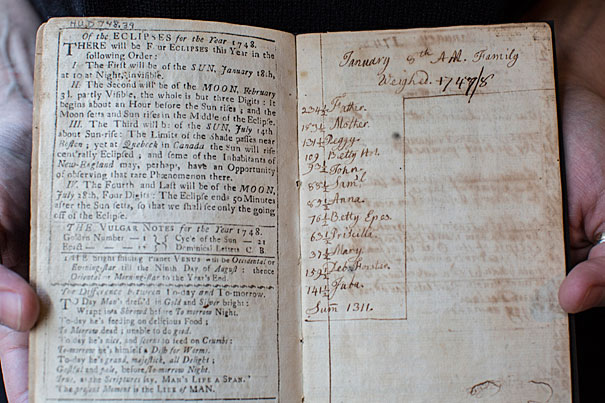 HUD 748.39
Of the ECLIPSES for the Year 1748.
THERE will be Four ECLIPSES this Year in the
following Order:
I. The First will be of the SUN, January 18th,
at 10 at Night, invisible.
II. The Second will be of the MOON, February
3d, partly Visible, the whole is but three Digits: It
begins about an Hour before the Sun rises; and the
Moon sets and Sun rises in the Middle of the Eclipse.
III. The Third will be of the SUN, July 14th
about Sun-rise: The Limits of the Shade passes near
Boston; yet at Quebeck in Canada the Sun will rise
centrally Eclipsed; and some of the Inhabitants of
New-England may, perhaps, have an Opportunity
of observing that rare Phænomenon there.
IV. The Fourth and Last will be of the MOON,
July 28th, Four Digits: The Eclipse ends 50 Minutes
after the Sun sets, so that we shall see only the going
off of the Eclipse.
THE VULGAR NOTES for the Year 1748.
Golden Number — 1 Cycle of the Sun — 21
Epact — 11 Dominical Letters C. B.
bright shining Planet VENUS will be Occidental or
Evening-star till the Ninth Day of August: thence
Oriental or Morning-star to the Year's End.
The Difference between To-day and To-morrow.
TO Day Man's dress'd in Gold and Silver bright;
Wrapt in a Shroud before To morrow Night.
To-day he's feeding on delicious Food;
To Morrow dead; unable to do good.
To-day he's nice, and scorns to feed on Crumbs;
To-morrow he's himself a Dish for Worms.
To-day he's grand, majestick, all Delight;
Gastful and pale, before To-morrow Night.
True, as the Scriptures say, MAN'S LIFE A SPAN.
The present Moment is the LIFE of MAN.
January 8th A.M. Family
Weighd. 1747/8
234½ Father.
Mother.
131½ Peggy.
109 Betty
93½ John
88½ Saml.
82½ Anna.
76½ Betty Epes
63½ Priscilla.
37½ Mary
139½
141½ Juba.
Sum 1311.